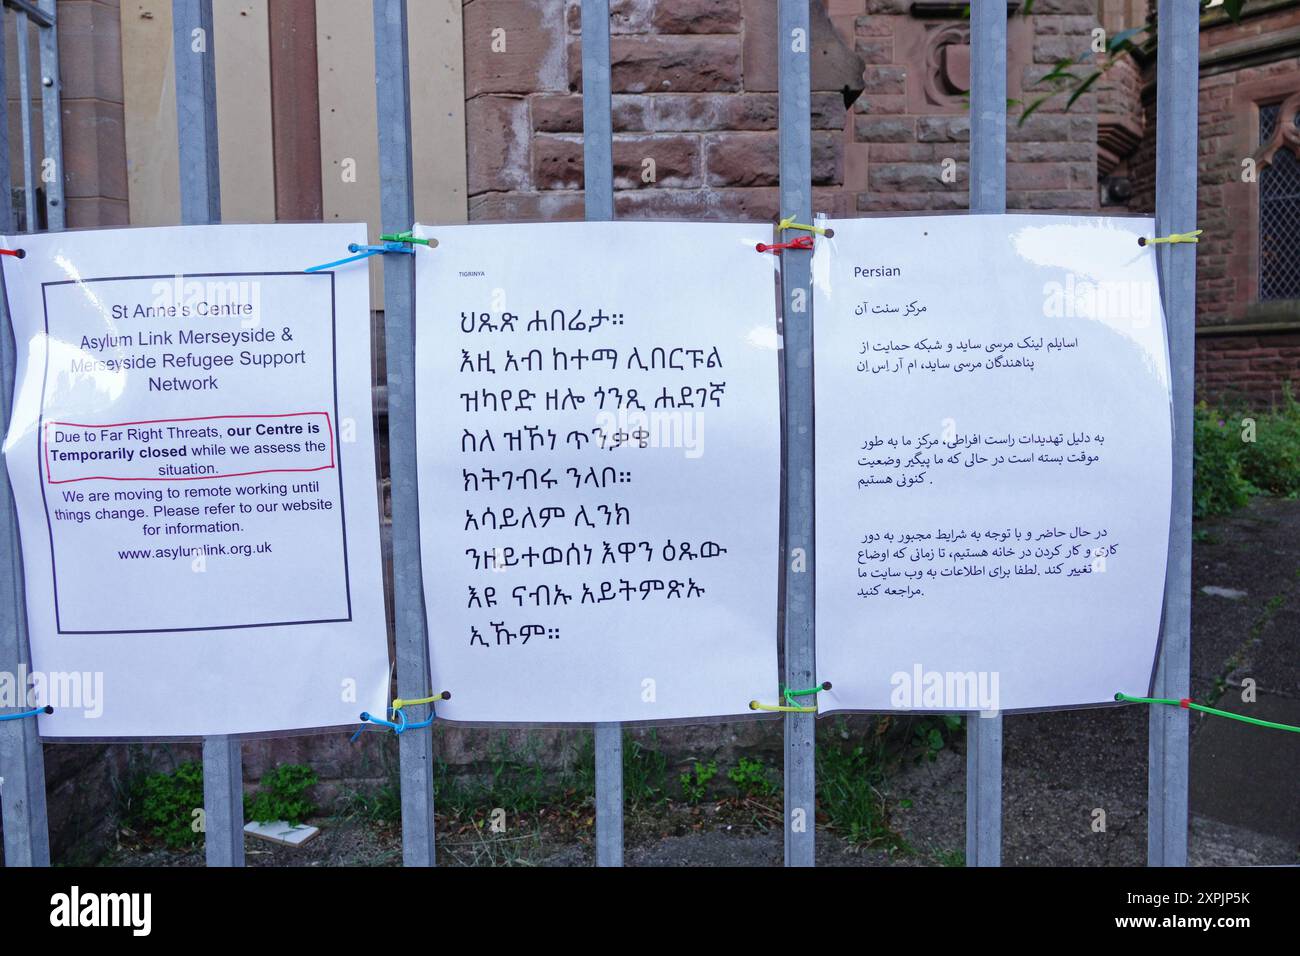 St Anne's Centre
Asylum Link Merseyside &
Merseyside Refugee Support
Network
Due to Far Right Threats, our Centre is
Temporarily closed while we assess the
situation.
We are moving to remote working until
things change. Please refer to our website
for information.
www.asylumlink.org.uk
TIGRINYA
ህጹጽ ሐበሬታ።
እዚ አብ ከተማ ሊበርፑል
ዝካየድ ዘሎ ጎንጺ ሐደገኛ
ስለ ዝኾነ ጥንቃቄ
ክትገብሩ ንላቦ።
አሳይለም ሊንክ
ንዘይተወሰነ እዋን ዕጹው
እዩ ናብኡ አይትምጽኡ
ኢኹም።
Persian
مرکز سنت آن
اسایلم لینک مرسی ساید و شبکه حمایت از
پناهندگان مرسی ساید، ام آر اِس اِن
به دلیل تهدیدات راست افراطی، مرکز ما به طور
موقت بسته است در حالی که ما پیگیر وضعیت
کنونی هستیم .
در حال حاضر و با توجه به شرایط مجبور به دور
کاری و کار کردن در خانه هستیم، تا زمانی که اوضاع
تغییر کند .لطفا برای اطلاعات به وب سایت ما
مراجعه کنید.
alamy
Image ID: 2XPJP5K
www.alamy.com